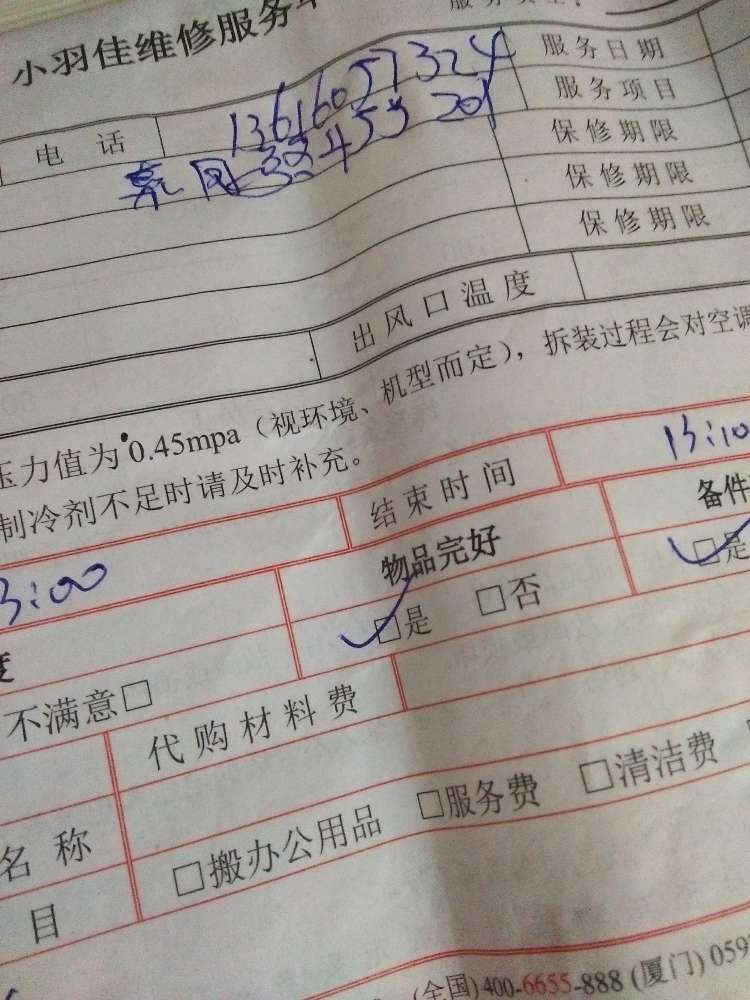 小羽佳维修服务
服务日期
电 话 13616057324
服务项目
保修期限
保修期限
保修期限
出风口温度
压力值为0.45mpa（视环境、机型而定），拆装过程会对空调
制冷剂不足时请及时补充。
结束时间 13:10
3:00
物品完好 备件
度
☑是 □否 ☑是
不满意□
代购材料费
名 称
□搬办公用品 □服务费 □清洁费
目
(全国)400-6655-888 (厦门) 059